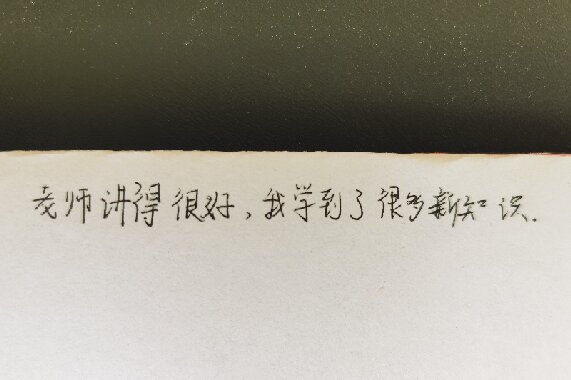 老师讲得很好,我学到了很多新知识.